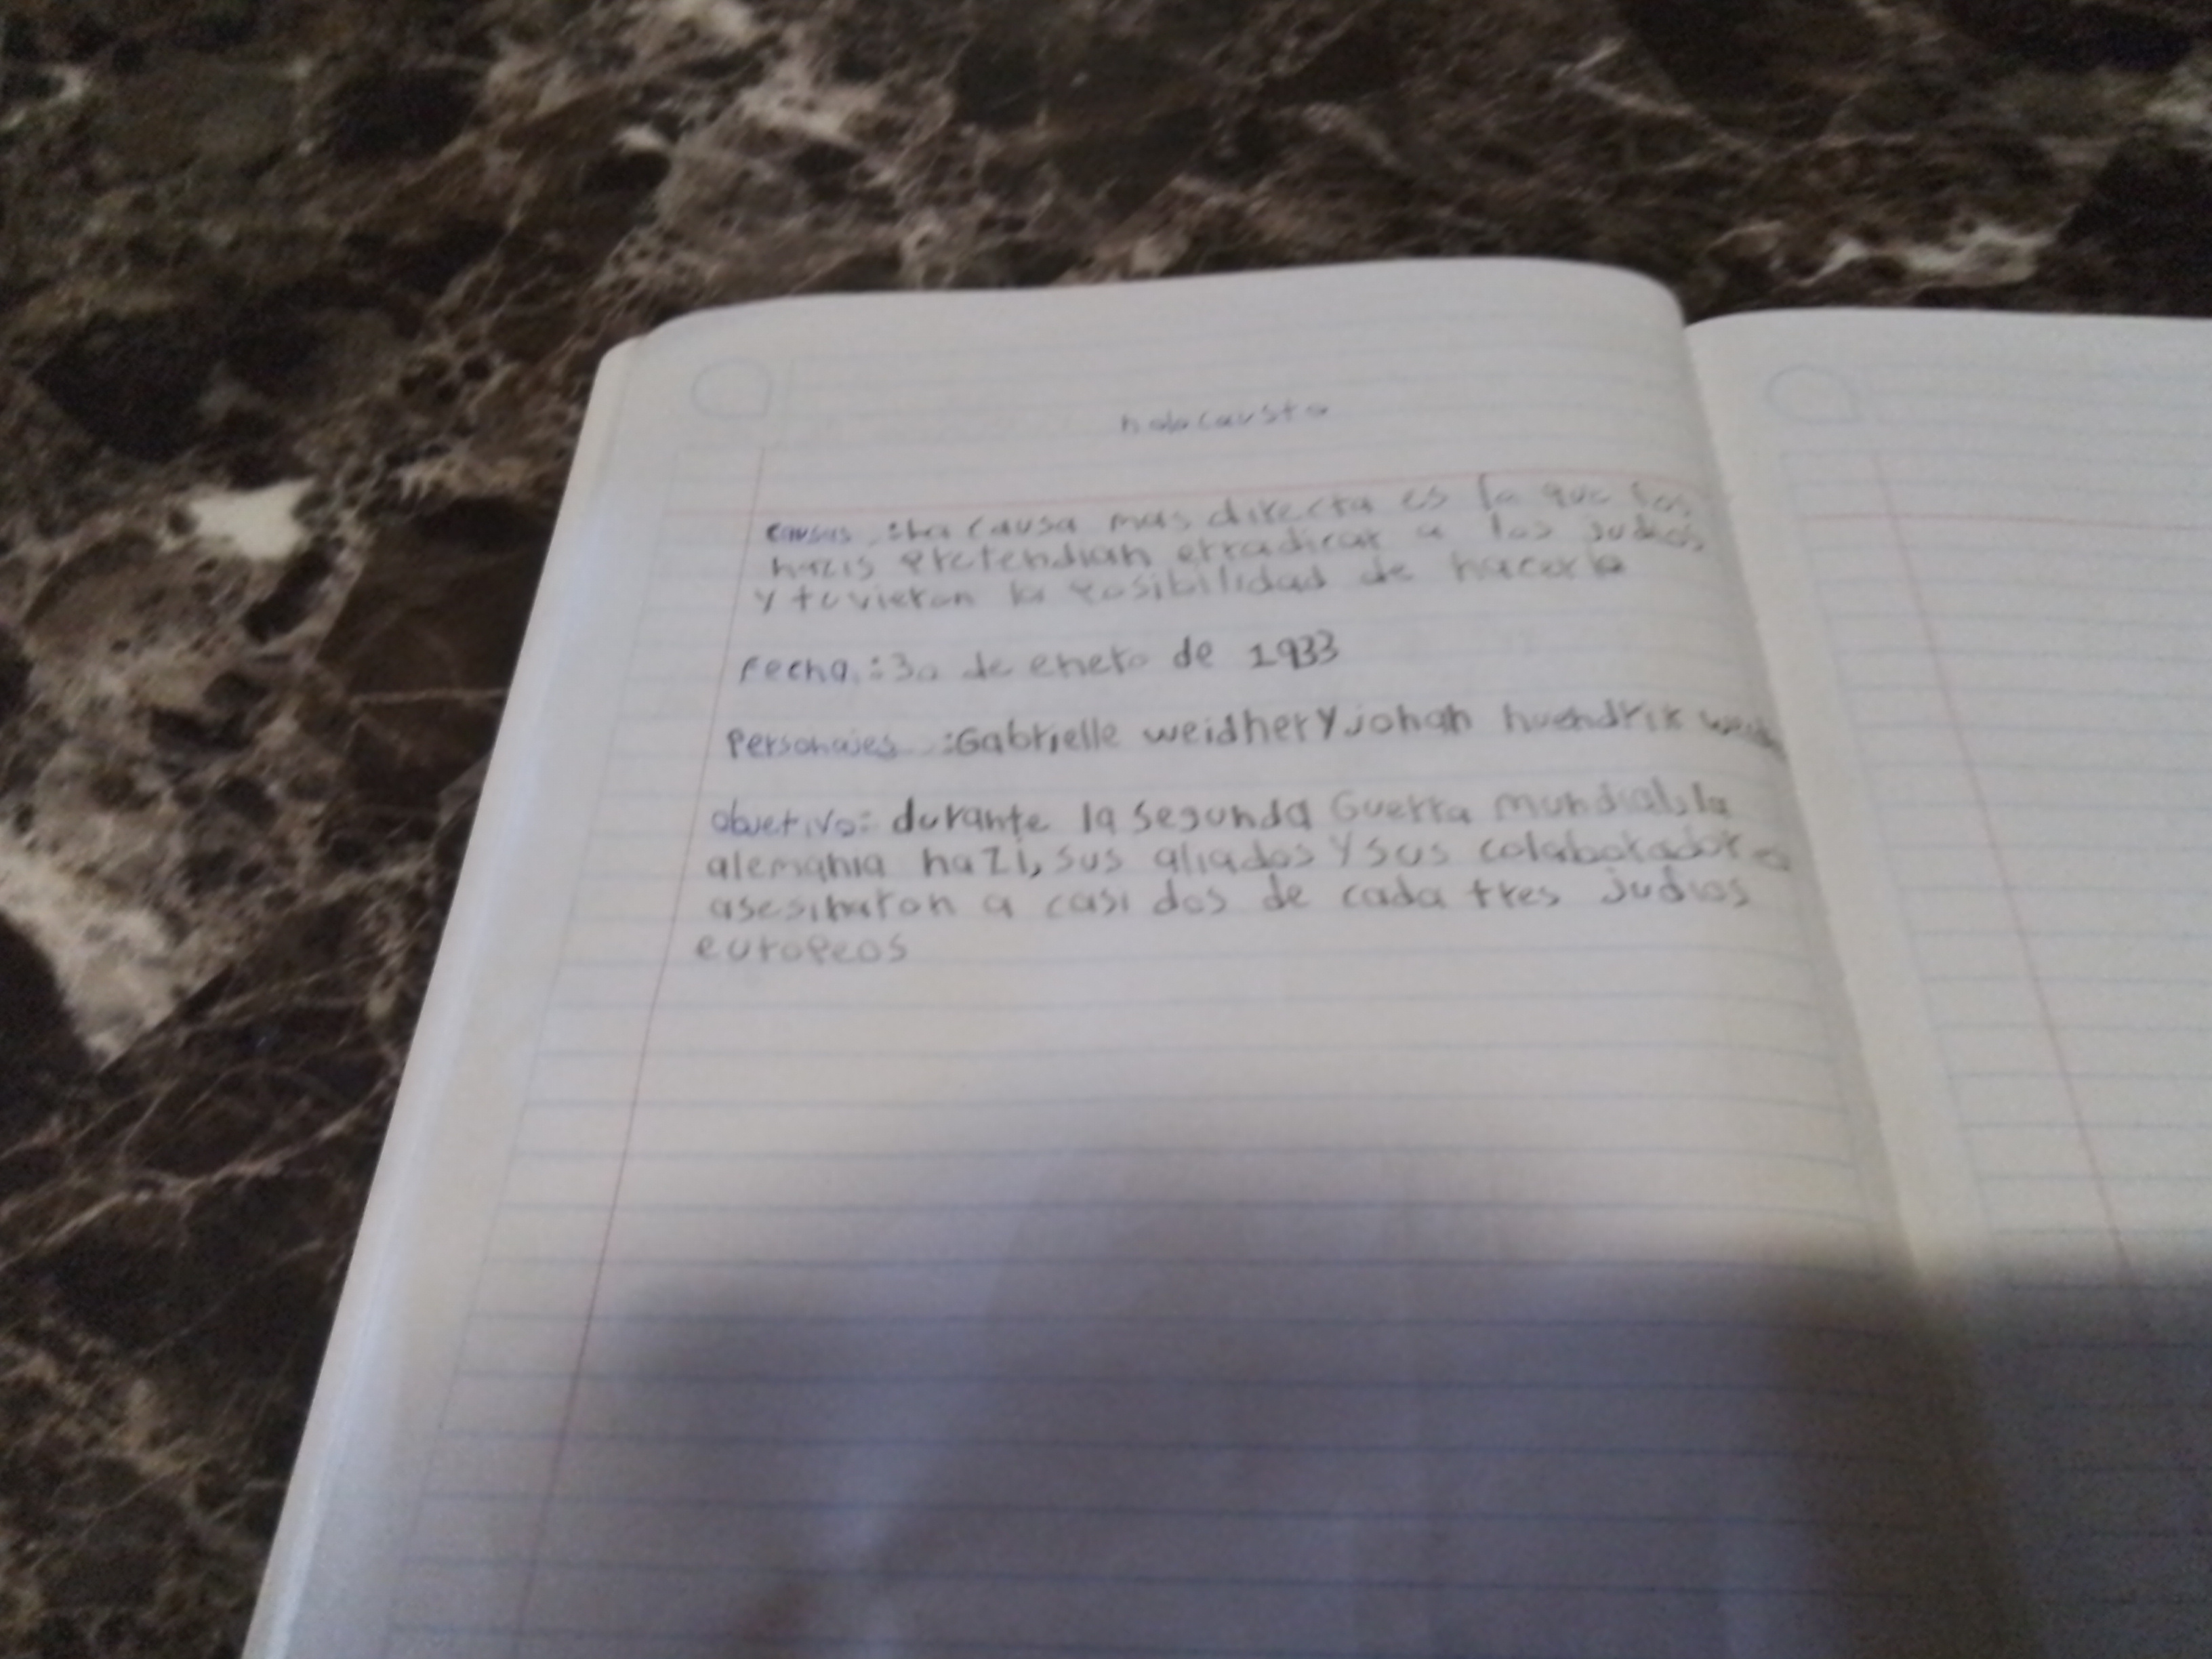 holocausto
causas : La causa mas directa es la que los
nazis pretendian erradicar a los judios
y tuvieron la posibilidad de hacerlo
Fecha : 30 de enero de 1933
Personajes : Gabrielle weidher y johan huendrik
objetivo: durante la segunda Guerra mundial, la
alemania nazi, sus aliados y sus colaborador
asesinaron a casi dos de cada tres judios
europeos